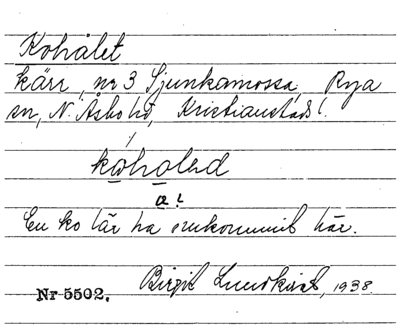 Kohålet
kärr, nr 3 Sjunkamossa, Rya
sn, N. Åsbo hd, Kristianstads l.
kohaled
En ko lär ha omkommit här.
Nr 5502. Birgit Lundkvist, 1938.